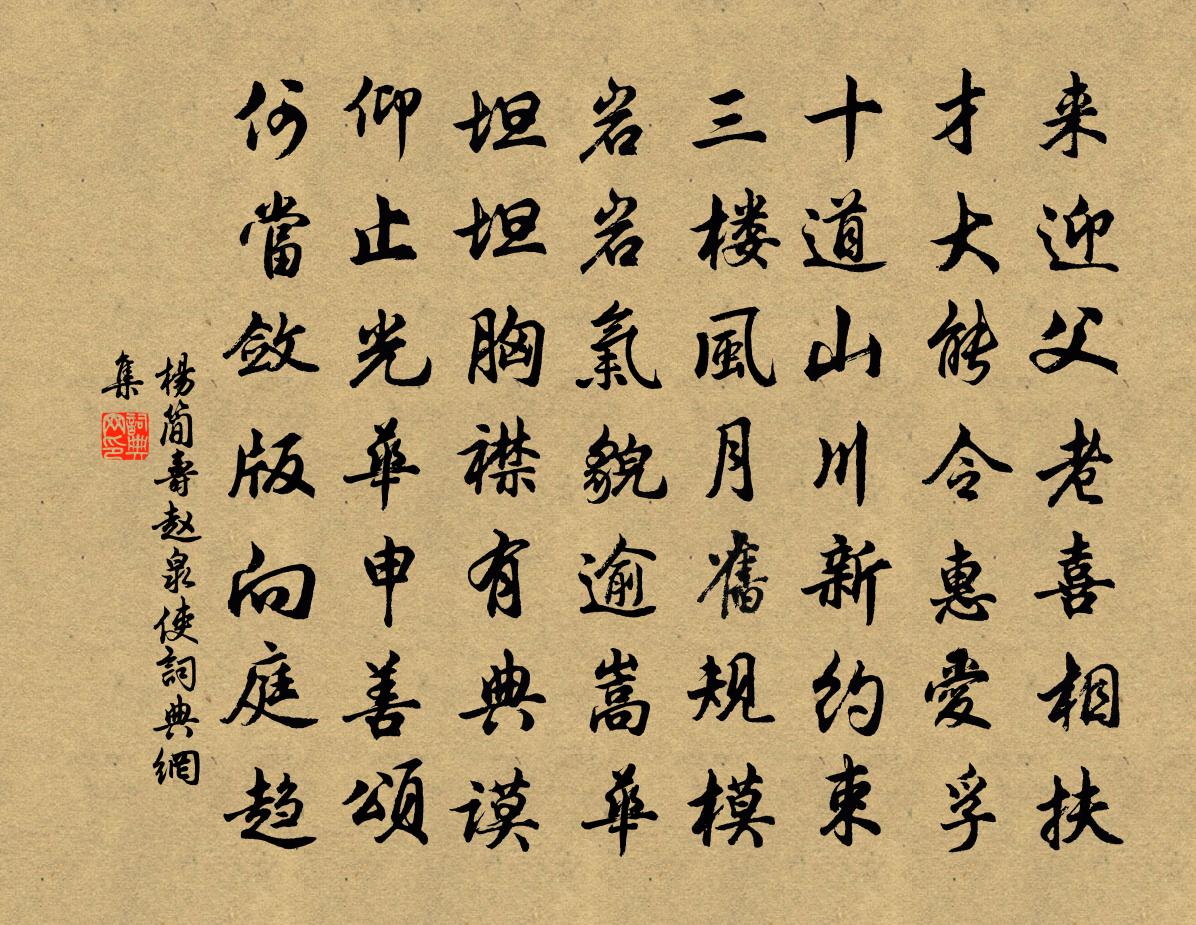 来迎父老喜相扶
才大能令惠愛孚
十道山川新約束
三楼風月舊規模
岩岩氣貌逾嵩華
坦坦胸襟有典谟
仰止光華申善頌
何當斂版向庭趋
楊简壽赵泉使詞典網
集
詞典
网印